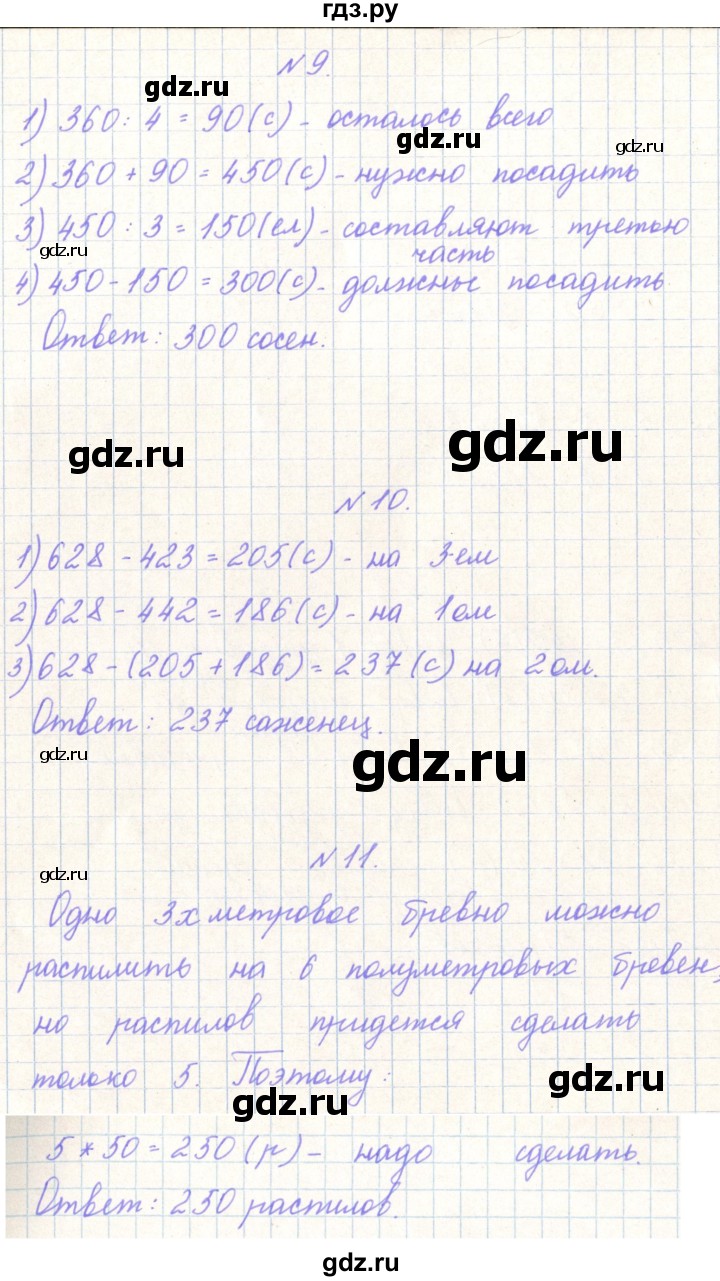 гдз.ру
№9.
gdz.ru
1) 360 : 4 = 90 (с) - осталось всего
gdz.ru
gdz.ru
2) 360 + 90 = 450 (с) - нужно посадить
3) 450 : 3 = 150 (ел) - составляют третью
часть
gdz.ru
4) 450 - 150 = 300 (с) - должны посадить
Ответ: 300 сосен.
gdz.ru
gdz.ru
№10.
1) 628 - 423 = 205 (с) - на 3-ем
2) 628 - 442 = 186 (с) - на 1ом
3) 628 - (205 + 186) = 237 (с) на 2ом.
Ответ: 237 саженец.
gdz.ru
gdz.ru
№11.
gdz.ru
Одно 3х метровое бревно можно
распилить на 6 полуметровых бревен,
но распилов придется сделать
только 5. Поэтому:
gdz.ru
gdz.ru
5 * 50 = 250 (р) - надо сделать.
Ответ: 250 распилов.
gdz.ru